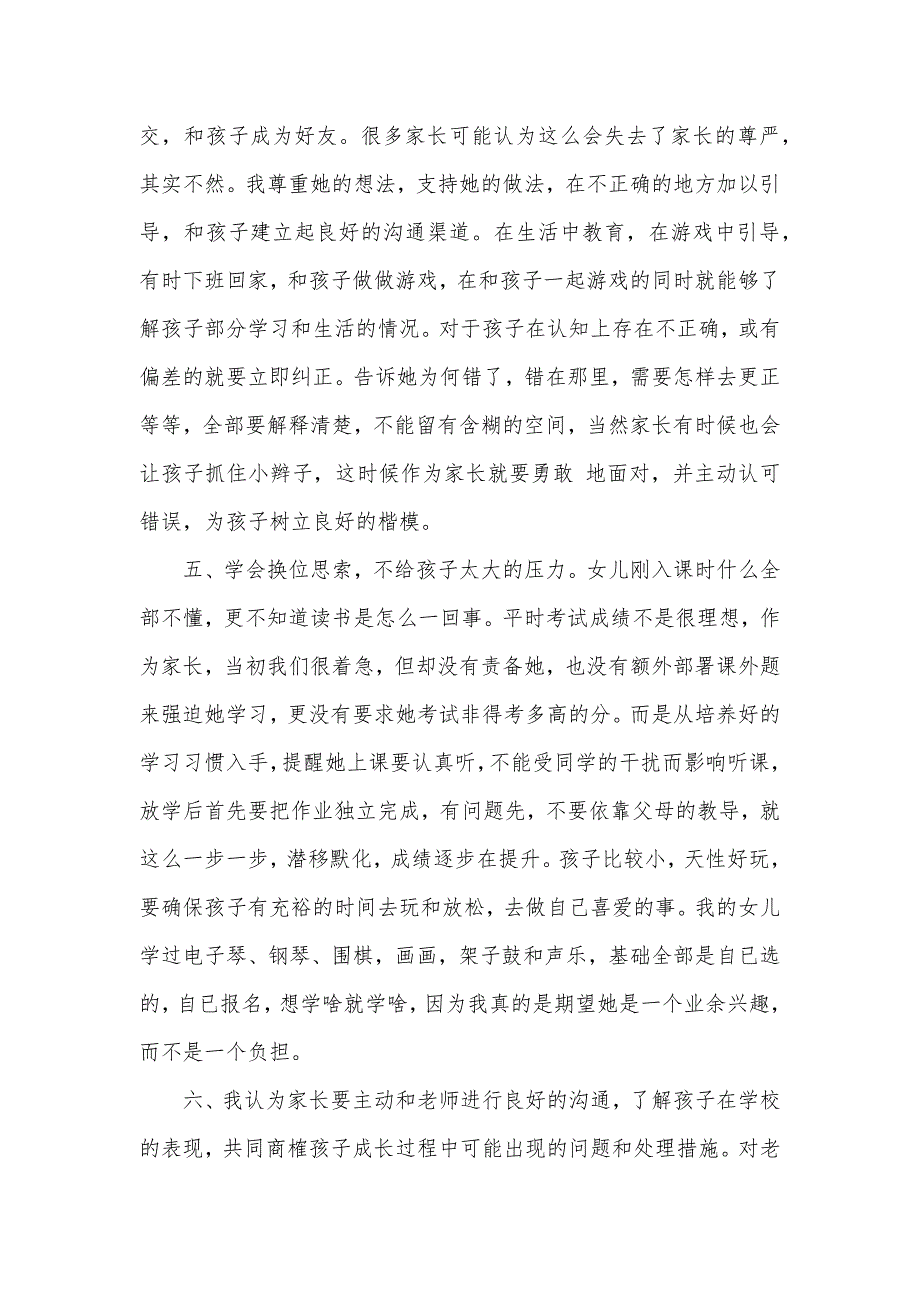 交，和孩子成为好友。很多家长可能认为这么会失去了家长的尊严，
其实不然。我尊重她的想法，支持她的做法，在不正确的地方加以引
导，和孩子建立起良好的沟通渠道。在生活中教育，在游戏中引导，
有时下班回家，和孩子做做游戏，在和孩子一起游戏的同时就能够了
解孩子部分学习和生活的情况。对于孩子在认知上存在不正确，或有
偏差的就要立即纠正。告诉她为何错了，错在那里，需要怎样去更正
等等，全部要解释清楚，不能留有含糊的空间，当然家长有时候也会
让孩子抓住小辫子，这时候作为家长就要勇敢 地面对，并主动认可
错误，为孩子树立良好的楷模。
五、学会换位思索，不给孩子太大的压力。女儿刚入课时什么全
部不懂，更不知道读书是怎么一回事。平时考试成绩不是很理想，作
为家长，当初我们很着急，但却没有责备她，也没有额外部署课外题
来强迫她学习，更没有要求她考试非得考多高的分。而是从培养好的
学习习惯入手，提醒她上课要认真听，不能受同学的干扰而影响听课，
放学后首先要把作业独立完成，有问题先，不要依靠父母的教导，就
这么一步一步，潜移默化，成绩逐步在提升。孩子比较小，天性好玩，
要确保孩子有充裕的时间去玩和放松，去做自己喜爱的事。我的女儿
学过电子琴、钢琴、围棋，画画，架子鼓和声乐，基础全部是自已选
的，自已报名，想学啥就学啥，因为我真的是期望她是一个业余兴趣，
而不是一个负担。
六、我认为家长要主动和老师进行良好的沟通，了解孩子在学校
的表现，共同商榷孩子成长过程中可能出现的问题和处理措施。对老